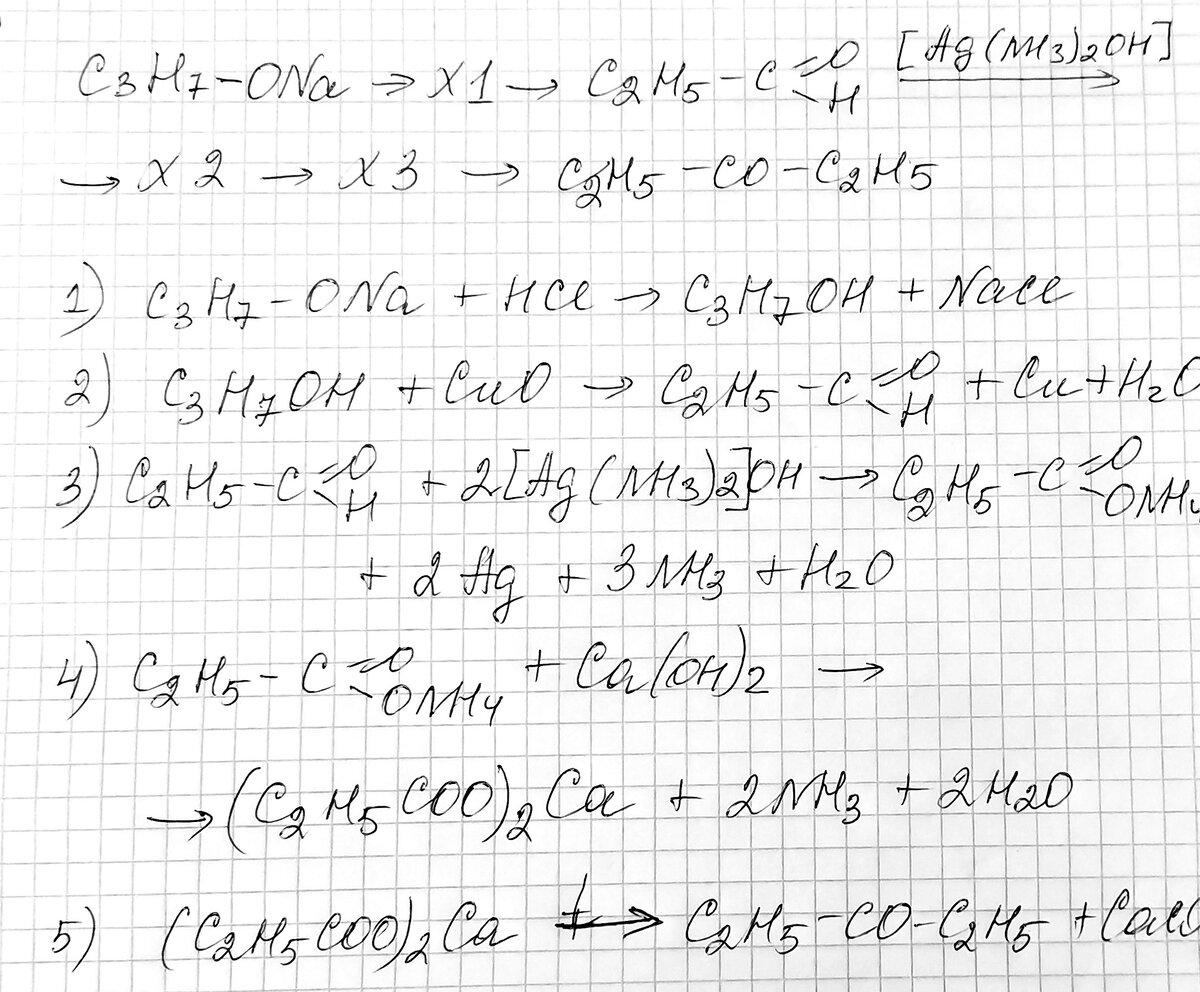 C3H7-ONa → X1 → C2H5-C=O-H [Ag(NH3)2OH] →
→ X2 → X3 → C2H5-CO-C2H5
1) C3H7-ONa + HCl → C3H7OH + NaCl
2) C3H7OH + CuO → C2H5-C=O-H + Cu + H2O
3) C2H5-C=O-H + 2[Ag(NH3)2]OH → C2H5-C=O-ONH4
+ 2Ag + 3NH3 + H2O
4) C2H5-C=O-ONH4 + Ca(OH)2 →
→ (C2H5COO)2Ca + 2NH3 + 2H2O
5) (C2H5COO)2Ca t→ C2H5-CO-C2H5 +